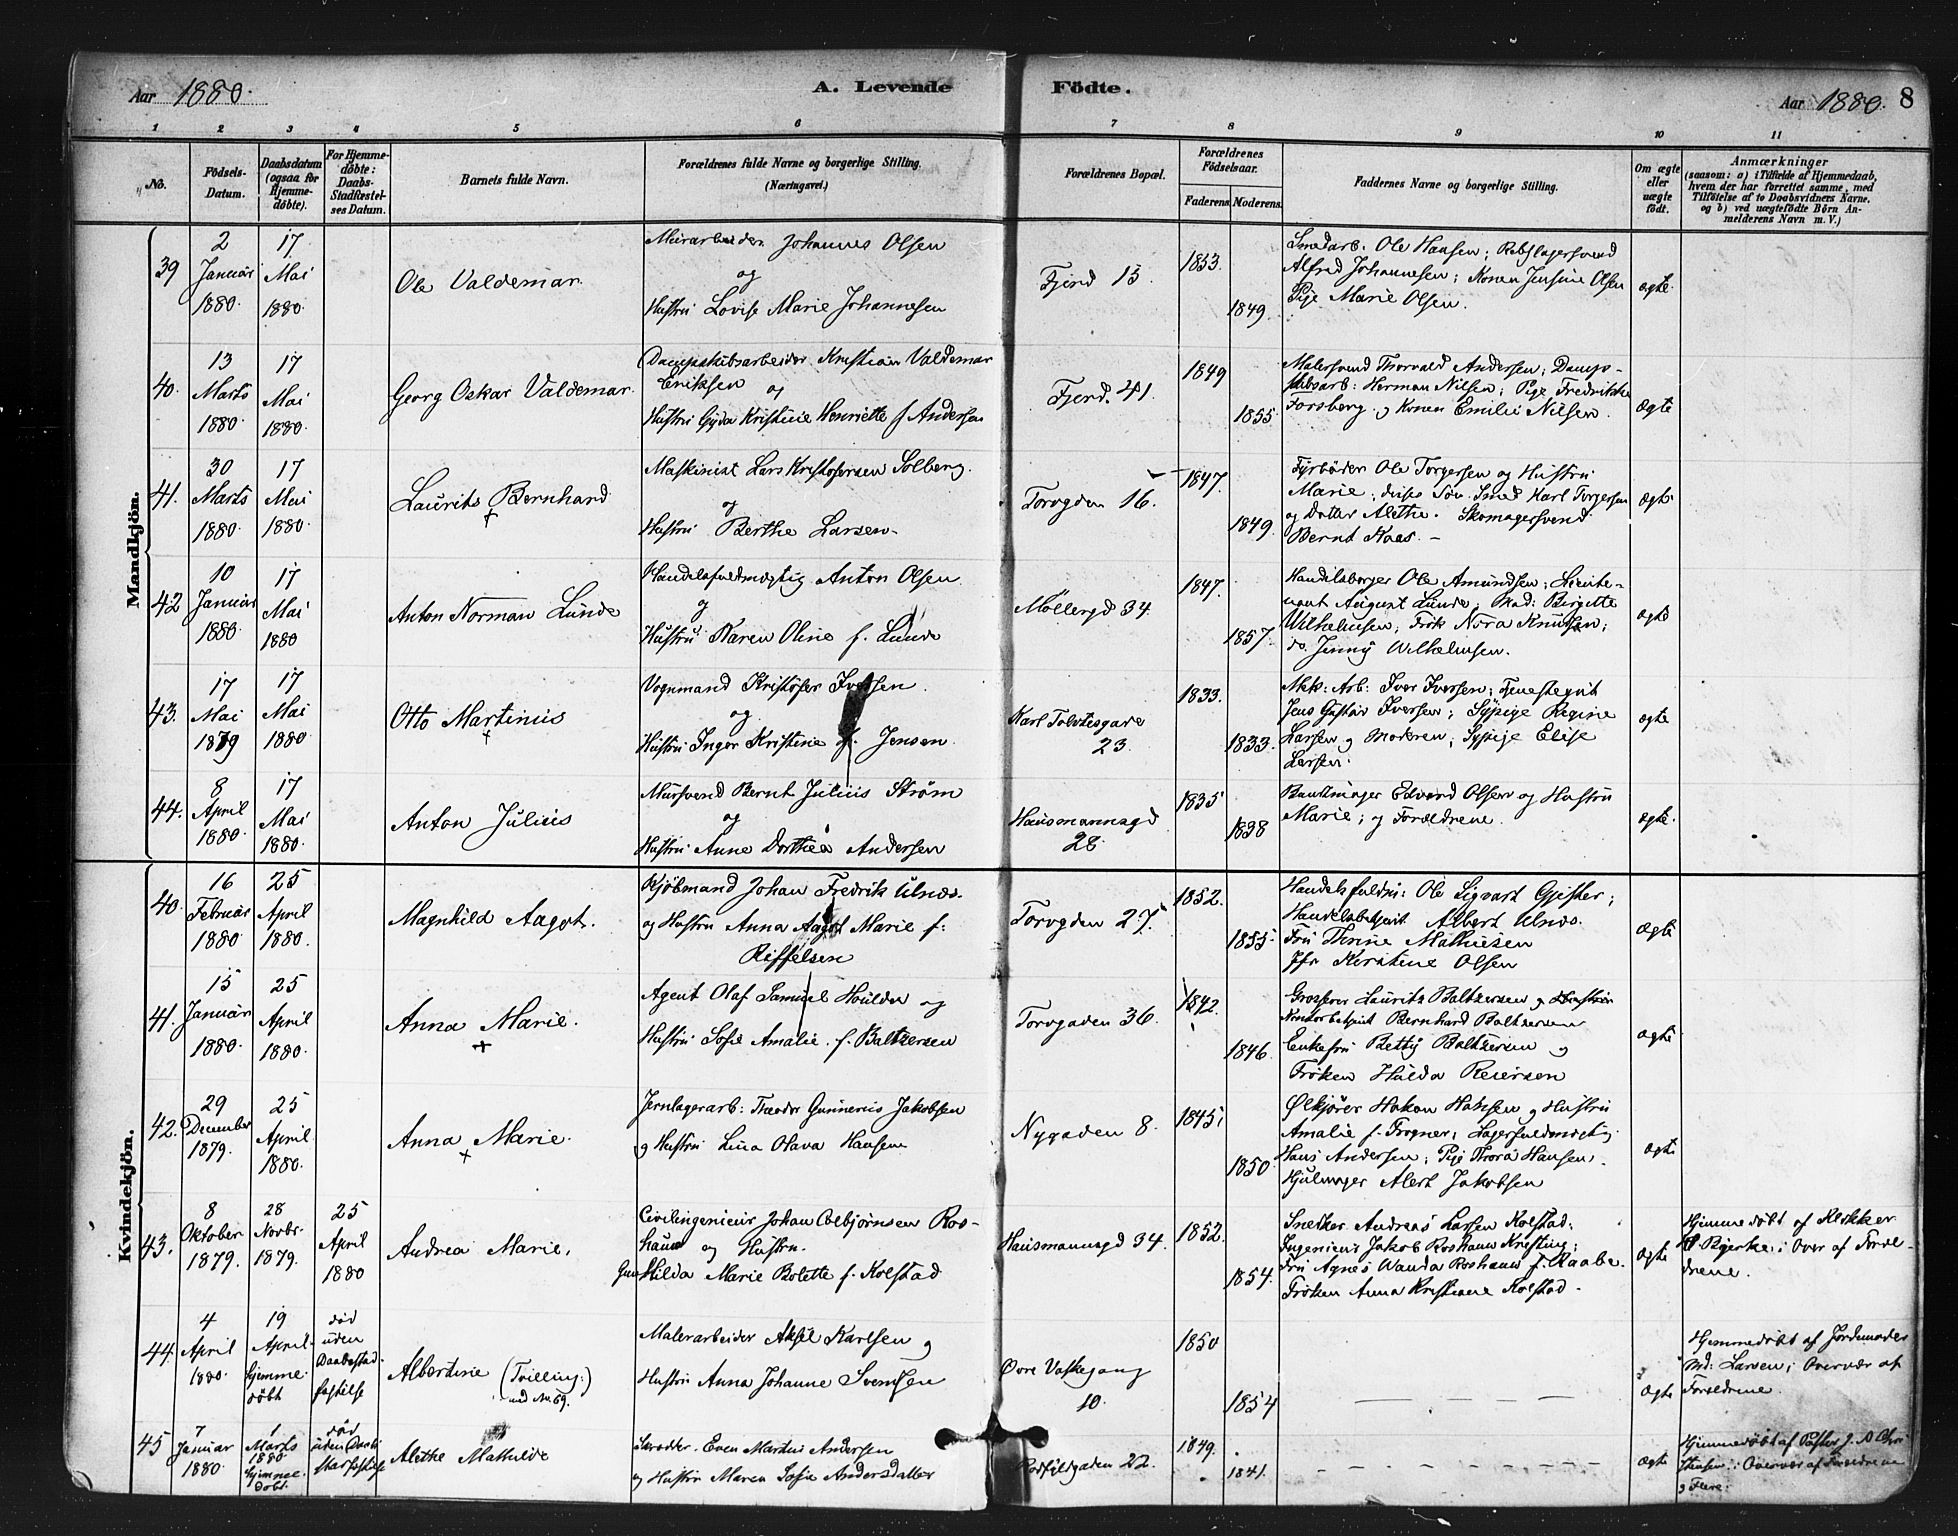 Aar 1880.
A. Levende Födte.
Aar 1880. 8
1 2 3 4 5 6 7 8 9 10 11
No.
Födsels-Datum.
Daabsdatum (ogsaa for Hjemme-döbte).
For Hjemme-döbte: Daabs-Stadfæstel-ses Datum.
Barnets fulde Navn.
Forældrenes fulde Navne og borgerlige Stilling.
(Næringsvei.)
Forældrenes Bopæl.
Forældrenes Födselsaar.
Faderens. Moderens.
Faddernes Navne og borgerlige Stilling.
Om ægte eller uægte födt.
Anmærkninger
(saasom: a) i Tilfælde af Hjemmedaab,
hvem der har forrettet samme, med
Tilföielse af to Daabsvidners Navne.
og b) ved uægtefödte Börn An-
melderens Navn m. V.)
Mandkjön.
39
2 Januar 1880.
17 Mai 1880.
Ole Valdemar.
Murarbeider Johannes Olsen
og
Hustru Lovise Marie Johannesen
Fjerd 15.
1853.
1849.
Smedarb. Ole Hansen; Rebslagersvend
Alfred Johannesen; Konen Jensine Olsen
Pige Marie Olsen.
ægte.
40.
13 Marts 1880.
17 Mai 1880.
Georg Oskar Valdemar.
Dampskibsarbeider Kristian Valdemar
Eriksen og
Hustru Gyda Kristine Henriette f. Andersen
Fjerd. 41.
1849
1855
Malersvend Thorvald Andersen; Damps-
skibsarb: Herman Nilsen; Pige Fredrikke
Forsberg og Konen Emilie Nilsen.
Ægte
41.
30 Marts 1880.
17 Mai 1880.
Laurits Bernhard
Maskinist Lars Kristofersen Solberg.
og
Hustru Berthe Larsen
Torvgden 16.
1847.
1849.
Fyrböder Ole Torgersen og Hustru
Marie; deres Sön Smed Karl Torgersen
og Datter Alethe. Skomagersvend
Bernt Haas.
ægte
42
10 Januar 1880.
17 Mai 1880
Anton Norman Lunde
Handelsfuldmægtig Anton Olsen
og
Hustru Karen Oline f. Lunde
Möllergd 34.
1847.
1857.
Handelsborger Ole Amundsen; Lieute-
nant August Lunde; Mad: Birgitte
Wilhelmsen; Frök Nora Knudsen;
do. Jenny Wilhelmsen.
ægte
43.
17 Mai 1879
17 Mai 1880.
Otto Martinius
Vognmand Kristofer Iversen.
og
Hustru Inger Kristine f. Jensen.
Karl Tolvtesgade 23.
1833.
1833.
Mek: Arb: Iver Iversen; Tjenestegut
Jens Gustav Iversen; Sypige Regine
Larsen og Moderen; Sypige Elise
Larsen.
ægte
44.
8 April 1880.
17 Mai 1880.
Anton Julius
Mursvend Bernt Julius Strøm
og
Hustru Anne Dorthea Andersen
Hausmannsgd 28.
1835
1838
Buntmager Edvard Olsen og Hustru
Marie; og Forældrene.
ægte.
Kvindekjön.
40.
16 Februar 1880
25 April 1880.
Magnhild Aagot.
Kjöbmand Johan Fredrik Ulnæs.
og Hustru Anna Aagot Marie f:
Riffelsen
Torvgden 27.
1852.
1855.
Handelsfuldm: Ole Sigvart Gjester;
Handelsbetjent Albert Ulnæs.
Fru Thrine Mathiesen
Jfr Kirstine Olsen
Ægte
41.
15 Januar 1880.
25 April 1880.
Anna Marie.
Agent Olaf Samuel Houlder og
Hustru Sofie Amalie f. Baltzersen
Torvgaden 36.
1842.
1846.
Grosserer Lauritz Baltzersen og
Kontorbetjent Bernhard Baltzersen
Enkefru Betty Baltzersen og
Fröken Hulda Reiersen
ægte
42.
29 December 1879.
25 April 1880.
Anna Marie.
Jernlagerarb: Theodor Gunnerius Jakobsen
og Hustru Lina Olava Hansen
Nygaden 8.
1845.
1850.
Ølkjörer Hakon Hansen og Hustru
Amalie f. Frogner; Lagerfuldmægtig
Hans Andersen; Pige Thora Hansen.
Hjulmager Alert Jakobsen
ægte
43.
8 Oktober 1879.
28 Novbr. 1879.
25 April 1880
Andrea Marie.
Civilingeniör Johan Colbjørnsen Ros-
hauw og Hustru.
Gunhilda Marie Bolette f. Kolstad
Hausmannsgd 34.
1852.
1854.
Snekker Andreas Larsen Kolstad;
Ingeniör Jakob Roshauw Kristing;
Fru Agnes Wanda Roshauw f. Raabe.
Fröken Anna Kristiane Kolstad.
ægte
Hjemmedöbt af Klokker
Bjerke; Over af Foræl-
drene.
44.
4 April 1880.
19 April. hjemme-döbt
död uden Daabsstad-fæstelse
Albertine (Tvilling:)
med No. 69.
Malerarbeider Aksel Karlsen og
Hustru Anna Johanne Svensen
Övre Vaskegang 10.
1850
1854
Ægte
Hjemmedöbt af Jordemoder
Md: Larsen; Overvær af
Forældrene.
45
7 Januar 1880.
1 Marts 1880 Hjemme-döbt.
död uden Daabs-stadfæstelse
Alethe Mathilde
Even Martin Andersen
og Hustru Maren Sofie Andersdatter
Rodfyldgaden 22.
1849.
1841.
ægte
Hjemmedöbt af Pastor J. A. Chri-
stensen; Overvær af Forældrene
og Flere.